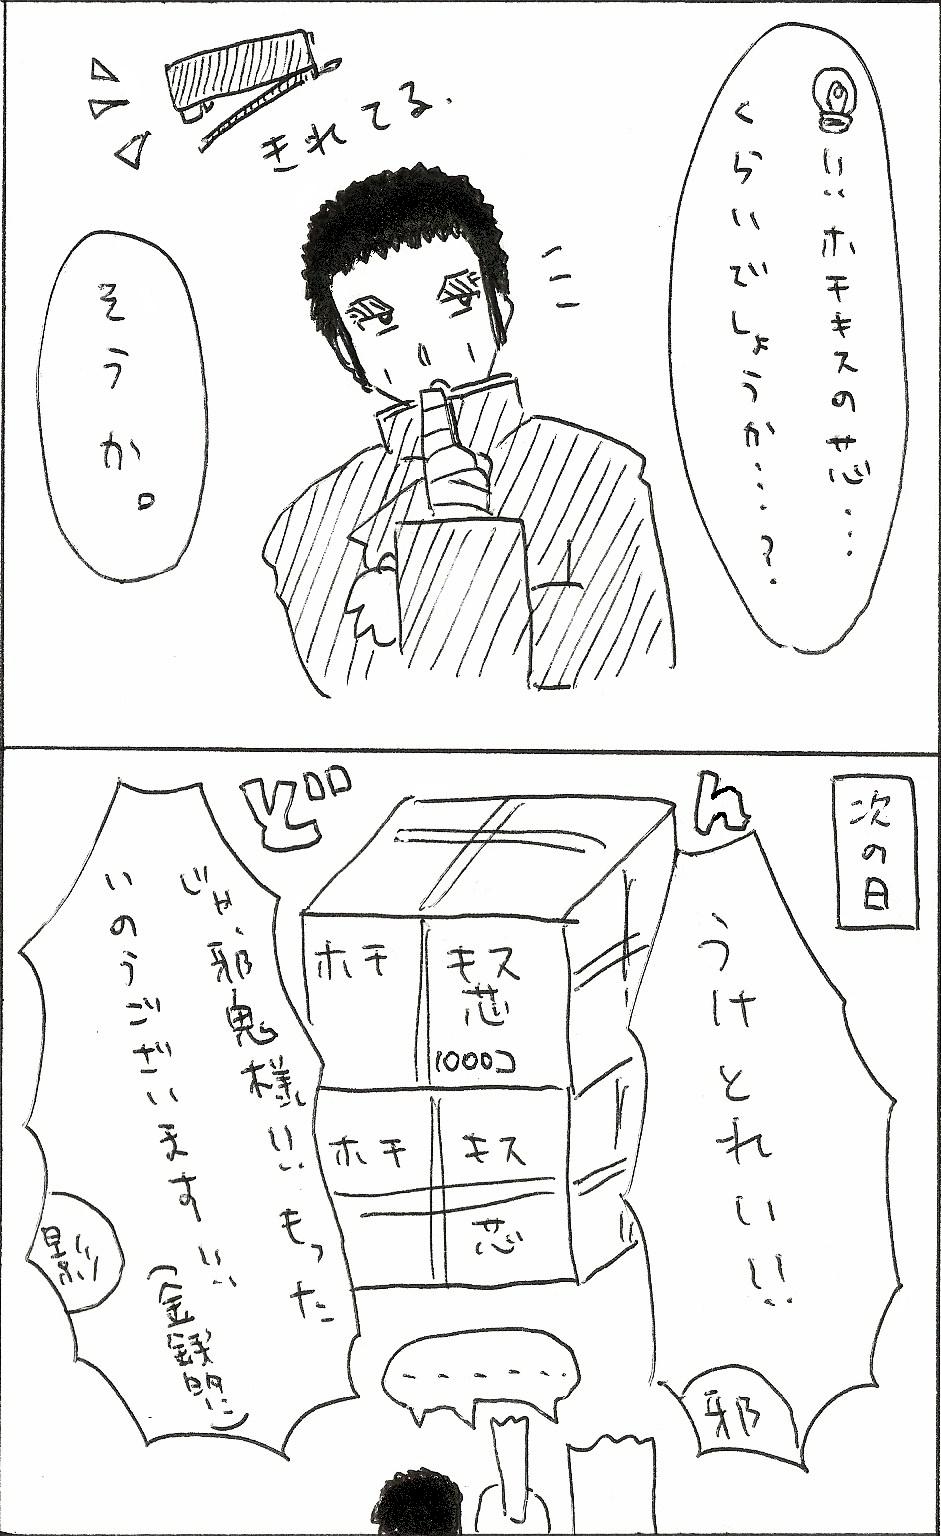 !!ホチキスの芯…
くらいでしょうか…?
きれてる.
そうか。
次の日
どん
うけとれいい!!
邪
ホチキス
芯
1000コ
ホチキス
芯
じゃ、邪鬼様!!もった
いのうございます!!
(金銭的に)
影
-------